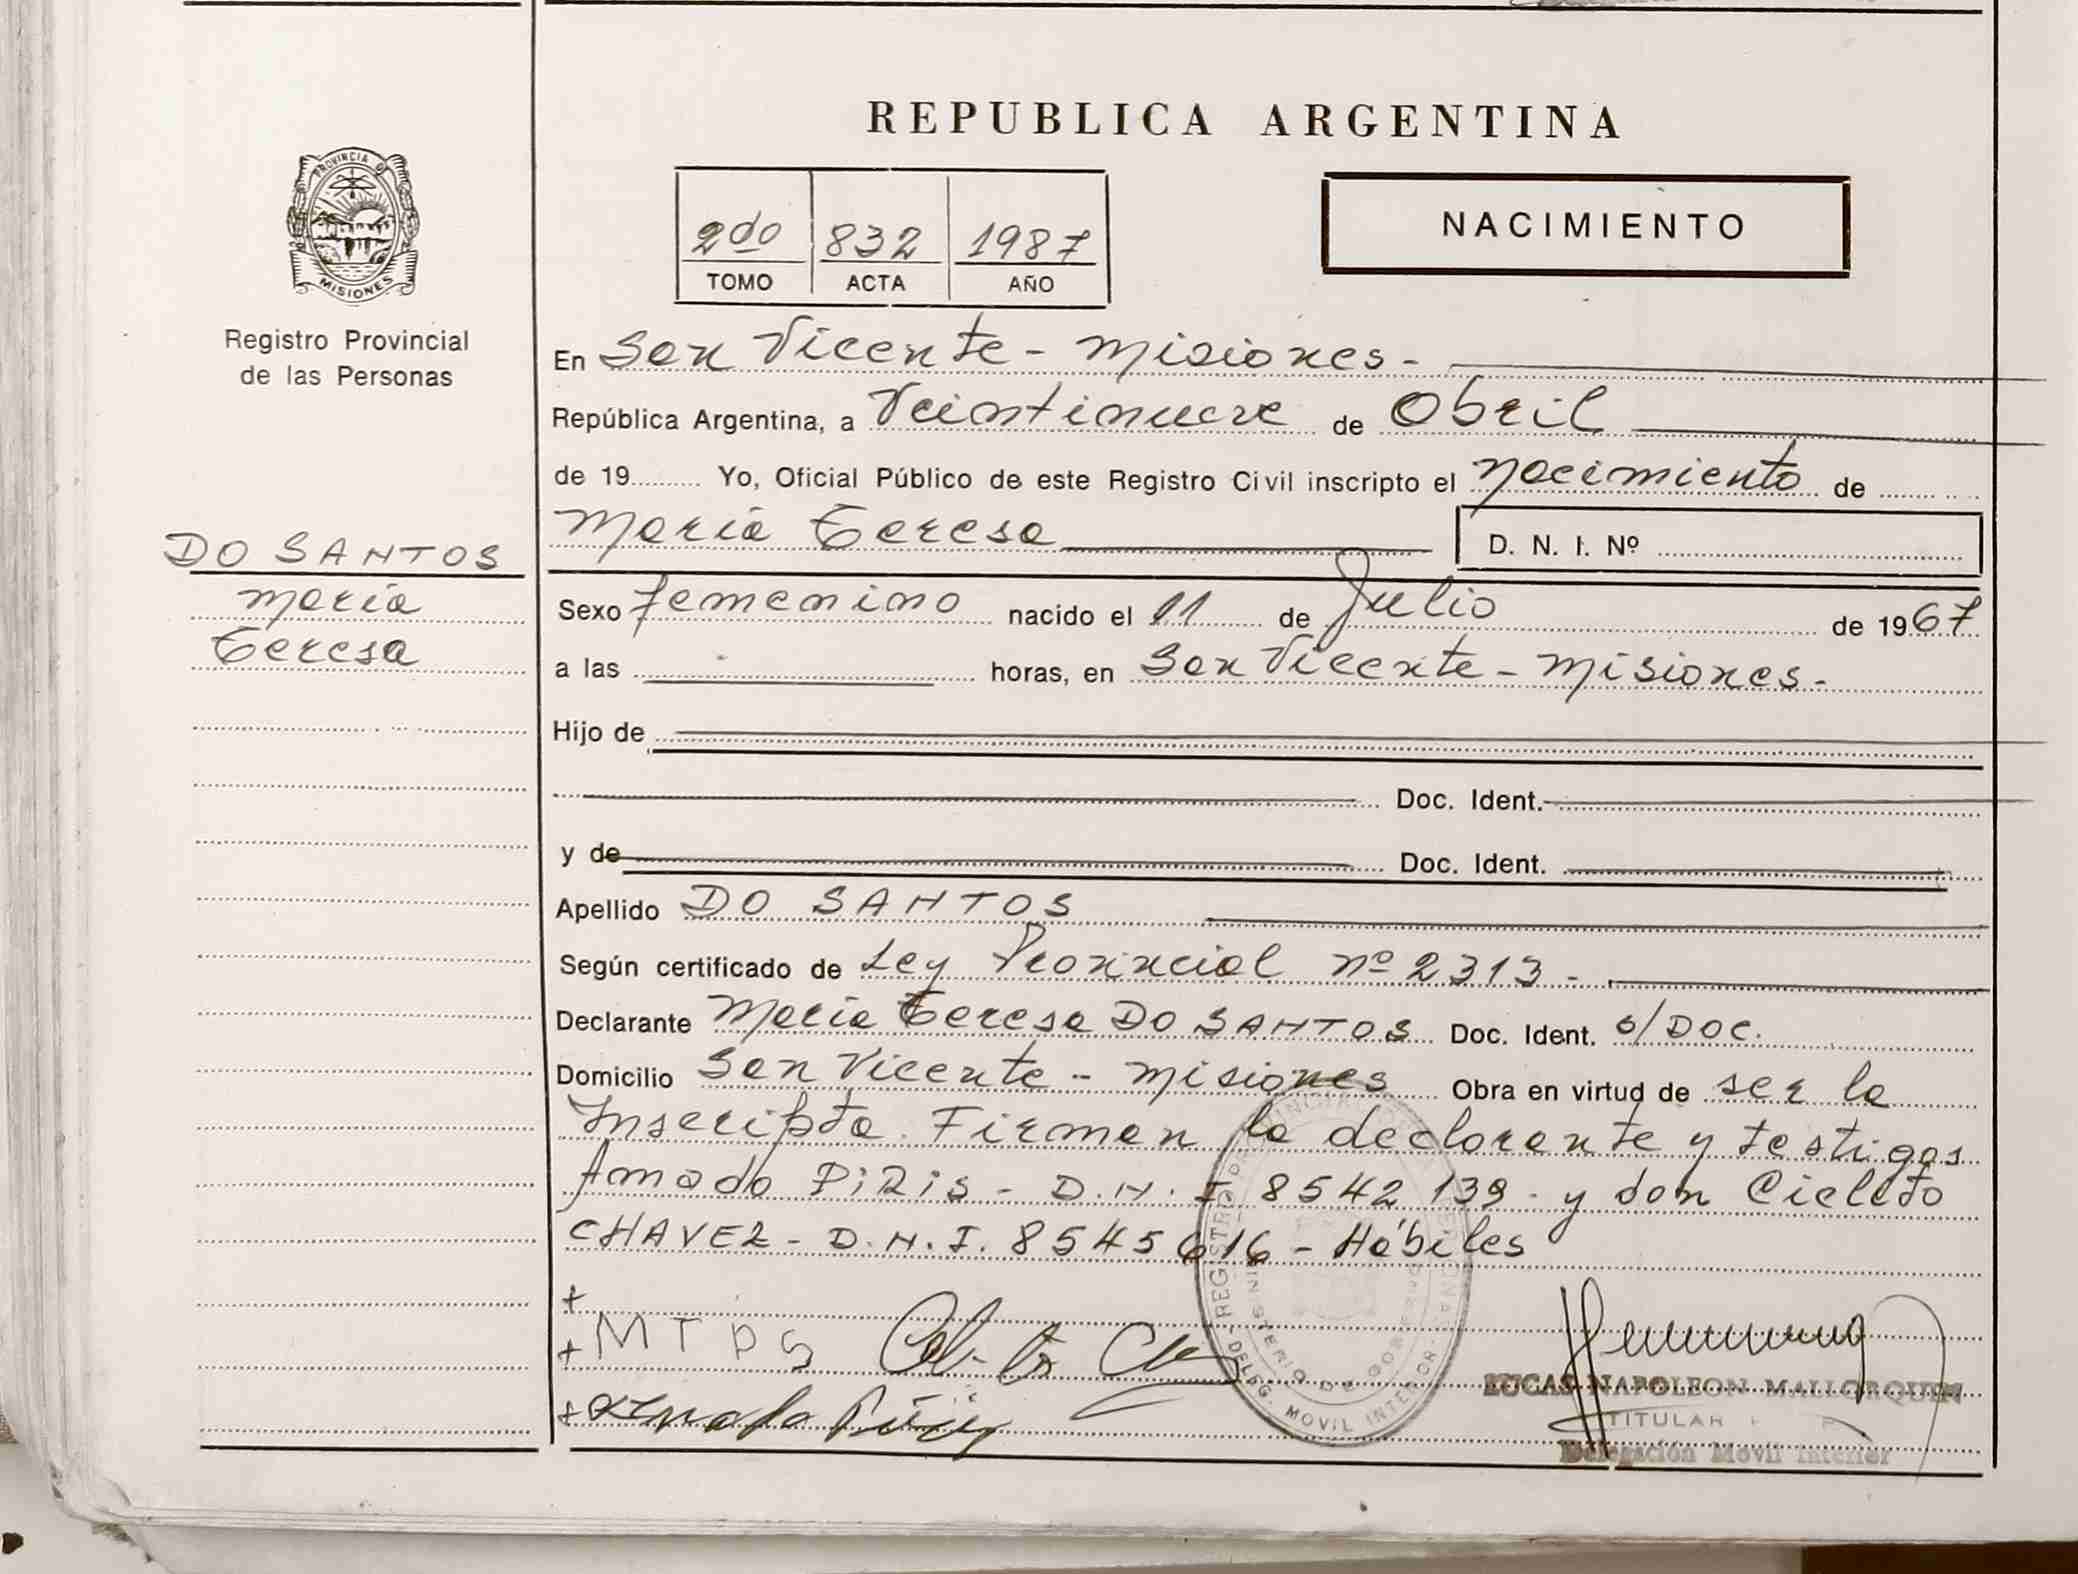 REPUBLICA ARGENTINA
PROVINCIA DE
MISIONES
Registro Provincial
de las Personas
2do 832 1987
TOMO ACTA AÑO
NACIMIENTO
En San Vicente - Misiones -
República Argentina, a Veintinueve de Abril
de 19 Yo, Oficial Público de este Registro Civil inscripto el nacimiento de
María Teresa
D. N. I. Nº
DO SANTOS
María
Teresa
Sexo femenino nacido el 11 de Julio de 1967
a las horas, en San Vicente - Misiones -
Hijo de
Doc. Ident.
y de Doc. Ident.
Apellido DO SANTOS
Según certificado de Ley Provincial nº 2313 -
Declarante María Teresa DO SANTOS Doc. Ident. s/DOC.
Domicilio San Vicente - Misiones Obra en virtud de ser la
Inscripta. Firman la declarante y testigos
Amado PIRIS - D.N.I 8542139 - y don Cicleto
CHAVEZ - D.N.I. 8545616 - Hábiles
+
+ MTDS
+
REGISTRO PROVINCIAL DE LAS PERSONAS
MINISTERIO DE GOBIERNO
DELEG. MOVIL INTERIOR
LUCAS NAPOLEON MALLORQUIN
TITULAR
Delegación Movil Interior